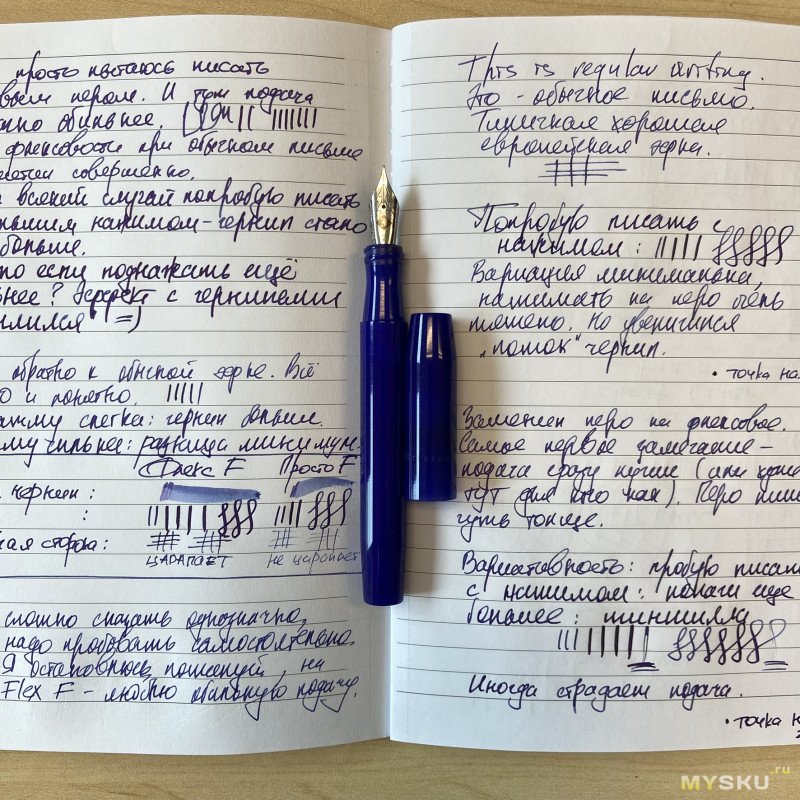 просто пытаюсь писать
пером. И там подача
обильнее.
флексовости при обычном письме
совершенно.
всякий случай попробую писать
нажимом - чернил стало
больше.
если поднажать ещё
? Эффект с чернилами
=)
обратно к обычной эфке. Всё
и понятно.
слегка: чернил больше.
сильнее: разница минимум.
Флекс F Просто F
чернил:
:
сторона:
ЦАРАПАЕТ не царапает
сложно сказать однозначно,
надо пробовать самостоятельно.
Я остановлюсь, пожалуй, на
Flex F - люблю обильную подачу.
This is regular writing.
Это - обычное письмо.
Типичная хорошая
европейская эфка.
Попробую писать с
нажимом:
Вариация минимальна,
нажимать на перо очень
тяжело. Но увеличился
"поток" чернил.
• точка
Заменен перо на флексовое.
Самое первое замечание -
подача сразу лучше (или хуже
тут для кого как). Перо
чуть тоньше.
Вариативность: пробую
с нажимом: нажи еще
больнее:
Иногда страдает подача.
• точка
MYSKU.ru